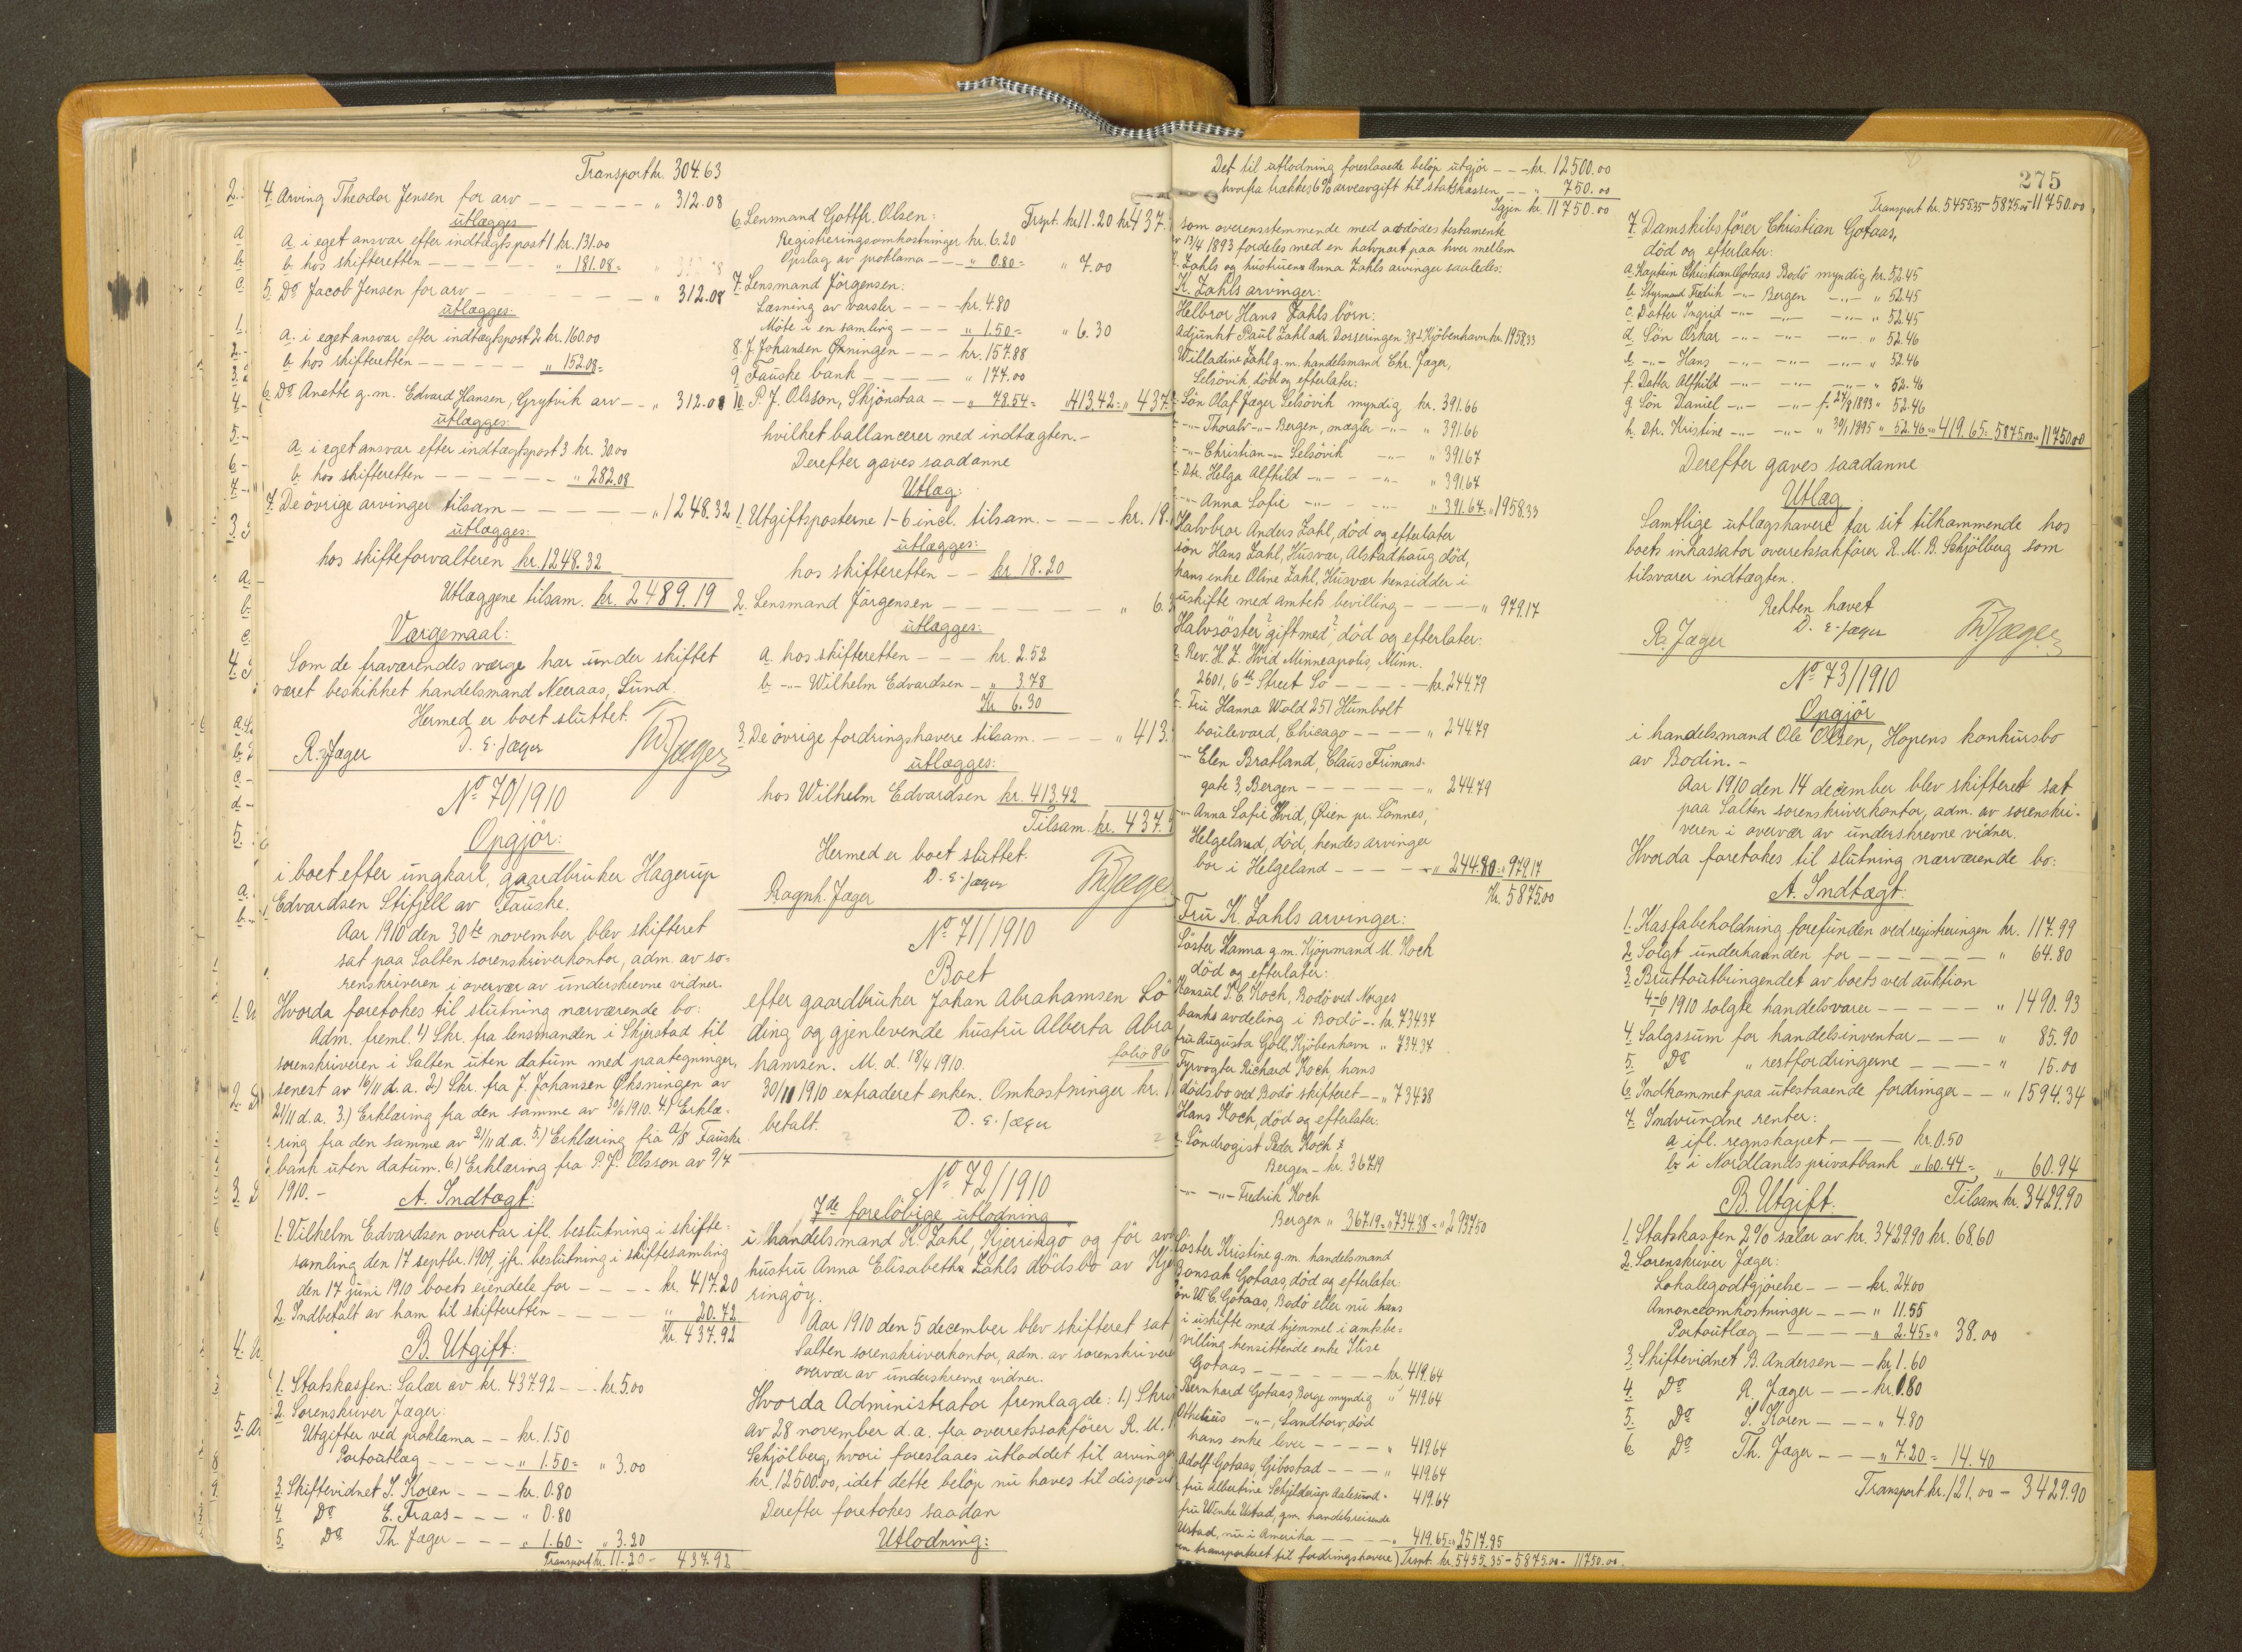 Transport kr. 304.63
4. Arving Theodor Jensen for arv - - - - - - " 312.08
utlægges
a. i eget ansvar efter indtægtspost 1 kr. 131.00
b. hos skifteretten - - - - - - " 181.08 =
5. Do Jacob Jensen for arv - - - - - " 312.08
utlægges:
a. i eget ansvar efter indtægtspost 2 kr. 160.00
b. hos skifteretten - - - - - - " 152.08 =
6. Do Anette g.m. Edvard Hansen, Grytvik arv - - " 312.08
utlægges:
a. i eget ansvar efter indtægtspost 3 kr. 30.00
b. hos skifteretten - - - - - - " 282.08
7. De övrige arvinger tilsam - - - - - " 1248.32
utlægges:
hos skifteforvalteren kr. 1248.32
Utlæggene tilsam. kr. 2489.19
Værgemaal:
Som de fraværendes værge har under skiftet
været beskikket handelsmand Neeraas, Sund.
Hermed er boet sluttet.
R. Jæger D. E. Jæger Th. Jæger
No 70/1910
Opgjör:
i boet efter ungkarl, gaardbruker Hagerup
Edvardsen Stifjell av Fauske.
Aar 1910 den 30te november blev skifteret
sat paa Salten sorenskriverkontor, adm. av so=
renskriveren i overvær av underskrevne vidner.
Hvorda foretokes til slutning nærværende bo:
Adm. freml. 1) Skr. fra lensmanden i Skjerstad til
sorenskriveren i Salten uten datum med paategninger,
senest av 16/11 d.a. 2) Skr. fra J. Johansen Öksningen av
21/11 d.a. 3.) Erklæring fra den samme av 30/6 1910. 4.) Erklæ-
ring fra den samme av 21/11 d.a. 5.) Erklæring fra A/S Fauske
bank uten datum. 6.) Erklæring fra P. J. Olsson av 9/4
1910. -
A. Indtægt:
1. Vilhelm Edvardsen overtar ifl. beslutning i skifte=
samling den 17 septbr. 1909, jfr. beslutning i skiftesamling
den 17 juni 1910 boets eiendele for - - - - kr. 417.20
2. Indbetalt av ham til skifteretten - - - - " 20.72
Kr. 437.92
B. Utgift:
1. Statskassen: Salær av kr. 437.92 - - - kr. 5.00
2. Sorenskriver Jæger:
Utgifter ved proklama - - kr. 1.50
Portoutlæg - - - - - " 1.50 = " 3.00
3. Skiftevidnet J. Koren - - - kr. 0.80
4. Do E. Fraas - - - " 0.80
5. Do Th. Jæger - - - " 1.60 = " 3.20
Transport kr. 11.20 - 437.92
6. Lensmand Gottfr. Olsen: Trspt. kr. 11.20 kr. 437.
Registreringsomkostninger kr. 6.20
Opslag av proklama - - " 0.80 = " 7.00
7. Lensmand Jörgensen:
Læsning av varsler - - - - kr. 4.80
Möte i en samling - - - " 1.50 = " 6.30
8. J. Johansen Öxningen - - - kr. 157.88
9. Fauske bank - - - - " 174.00
10. P. J. Olsson, Skjönstaa - - " 78.54 = " 413.42 = " 437.
hvilket ballancerer med indtægten. -
Derefter gaves saadanne
Utlæg:
1. Utgiftsposterne 1-6 incl. tilsam. - - - - kr. 18.
utlægges:
hos skifteretten - - kr. 18.20
2. Lensmand Jörgensen - - - - - - " 6.
utlægges:
a. hos skifteretten - - - kr. 2.52
b. -"- Wilhelm Edvardsen - " 3.78
Kr 6.30
3. De övrige fordringshavere tilsam. - - - " 413.
utlægges:
hos Wilhelm Edvardsen kr. 413.42
Tilsam. kr. 437.
Hermed er boet sluttet.
Ragnh. Jæger D. E. Jæger Th. Jæger
No 71/1910
Boet
efter gaardbruker Johan Abrahamsen Lö
ding og gjenlevende hustru Alberta Abra
hamsen. M. d. 18/4 1910. folio 86
30/11 1910 extraderet enken. Omkostninger kr. 1
betalt. D. E. Jæger
No 72/1910
7de foreløbige utlodning
i handelsmand K. Zahl, Kjerringö og för av
hustru Anna Elisabeth Zahls dödsbo av Kje
ringöy.
Aar 1910 den 5 december blev skifteret sat
Salten sorenskriverkontor, adm. av sorenskrivere
overvær av underskrevne vidner.
Hvorda Administrator fremlagde: 1.) Skriv
av 28 november d.a. fra overretssakförer R. M. B
Schjölberg, hvori foreslaaes utloddet til arvinger
kr. 12500.00, idet dette belöp nu haves til disposit
Derefter foretokes saadan
Utlodning:
Det til utlodning foreslaaede belöp utgjör - - - kr. 12500.00
hvorfra trækkes 6% arveavgift til statskassen - - " 750.00
Igjen kr. 11750.00
som overensstemmende med avdödes testamente
av 13/4 1893 fordeles med en halvpart paa hver mellem
K. Zahls og hustruens Anna Zahls arvinger saaledes:
K. Zahls arvinger:
Helbror Hans Zahls börn:
Adjunkt Paul Zahl adr. Dosseringen 38 1 Kjöbenhavn kr. 1958.33
Willadine Zahl g.m. handelsmand Chr. Jæger,
Selsövik, död og efterlater:
Sön Olaf Jæger Selsövik myndig kr. 391.66
-"- Thoralv -"- Bergen, mægler -"- " 391.66
-"- Christian -"- Selsövik -"- " 391.67
Dtr. Helga Alfhild -"- - -"- " 391.67
-"- Anna Sofie -"- - - - " 391.67 = " 1958.33
Halvbror Anders Zahl, död og efterlater
sön Hans Zahl, Husvær, Alstadhaug död,
hans enke Oline Zahl, Husvær hensidder i
uskifte med amtets bevilling - - - - " 979.17
Halvsöster ? gift med ?, död og efterlater:
a. Rev. H. Z. Hvid Minneapolis, Minn.
2601, 6th Street So - - - - - kr. 244.79
b. Fru Hanna Wold 251 Humbolt
boulevard, Chicago - - - - " 244.79
- Elen Bratland, Claus Frimans-
gate 3, Bergen - - - - - - " 244.79
-"- Anna Sofie Hvid, Öien pr. Sömnes,
Helgeland, död, hendes arvinger
bor i Helgeland - - - - " 244.80 = " 979.17
Kr. 5875.00
Fru K. Zahls arvinger:
Söster Hanna g.m. Kjöpmand M. Koch
död og efterlater:
Konsul J. C. Koch, Bodö ved Norges
banks avdeling i Bodö - - kr. 734.37
fru Augusta Goll, Kjöbenhavn " 734.37
Fyrvogter Richard Koch, hans
dödsbo ved Bodö skifteret - - " 734.38
Hans Koch, död og efterlater:
a. Söndrogist Peder Koch
Bergen - kr. 367.19
-"- -"- Fredrik Koch
Bergen " 367.19 = " 734.38 = " 2937.50
Söster Kristine g.m. handelsmand
Bonsak Gotaas, död og efterlater:
Sön W. C. Gotaas, Bodö eller nu hans
i uskifte med hjemmel i amtsbe=
villing hensittende enke Ilise
Gotaas - - - - - - - kr. 419.64
Bernhard Gotaas, Borge myndig " 419.64
Othelius -"-, Sandtorv, död
hans enke lever - - - - " 419.64
Adolf Gotaas, Gibostad - - - " 419.64
fru Albertine Schjelderup Aalesund - 419.64
fru Wenke Ustad, g.m. handelsreisende
Ustad, nu i Amerika - - - - " 419.65 = " 2517.85
transporteret til fordringshavere) Trspt. kr. 5455.35 - 5875.00 - 11750.00.
275
Transport kr. 5455.35 - 5875.00 - 11750.00
7. Damskibsförer Christian Gotaas,
död og efterlater:
a. Kaptein Christian Gotaas Bodö myndig kr. 52.45
b. Styrmand Fredrik -"- Bergen -"- " 52.45
c. Datter Ingrid -"- -"- -"- " 52.45
d. Sön Oskar -"- -"- -"- " 52.46
e. -"- Hans -"- -"- -"- " 52.46
f. Datter Alfhild -"- -"- -"- " 52.46
g. Sön Daniel -"- -"- f. 27/8 1893 " 52.46
h. Dtr. Kristine -"- -"- " 30/1 1895 " 52.46 = " 419.65 = 5875.00 = 11750.00
Derefter gaves saadanne
Utlæg
Samtlige utlægshavere tar sit tilkommende hos
boets inkassator overretssakförer R. M. B. Schjölberg som
tilsvarer indtægten.
Retten hævet
R. Jæger D. E. Jæger Th. Jæger
No 73/1910
Opgjör
i handelsmand Ole Olsen, Hopens konkursbo
av Bodin. -
Aar 1910 den 14 december blev skifteret sat
paa Salten sorenskriverkontor, adm. av sorenskri-
veren i overvær av underskrevne vidner.
Hvorda foretokes til slutning nærværende bo:
A. Indtægt:
1. Kassabeholdning forefunden ved registreringen kr. 117.99
2. Solgt underhaanden for - - - - - - " 64.80
3. Bruttoutbringendet av boets ved auktion
4-6 1910 solgte handelsvarer - - - - - " 1490.93
4. Salgssum for handelsinventar - - - " 85.90
5. Do " restfordringerne - - - - " 15.00
6. Indkommet paa utestaaende fordringer - - " 1594.34
7. Indvundne renter:
a. ifl. regnskapet - - - kr. 0.50
b. i Nordlands privatbank " 60.44 = " 60.94
Tilsam. kr. 3429.90
B. Utgift.
1. Statskassen 2% salær av kr. 3429.90 kr. 68.60
2. Sorenskriver Jæger:
Lokalegodtgjörelse - - - kr. 24.00
Annonceomkostninger - - - " 11.55
Portoutlæg - - - - - " 2.45 = " 38.00
3. Skiftevidnet B. Andersen - - kr. 1.60
4. Do R. Jæger - - - kr. 0.80
5. Do J. Koren - - - " 4.80
6. Do Th. Jæger - - - " 7.20 = 14.40
Transport kr. 121.00 - 3429.90